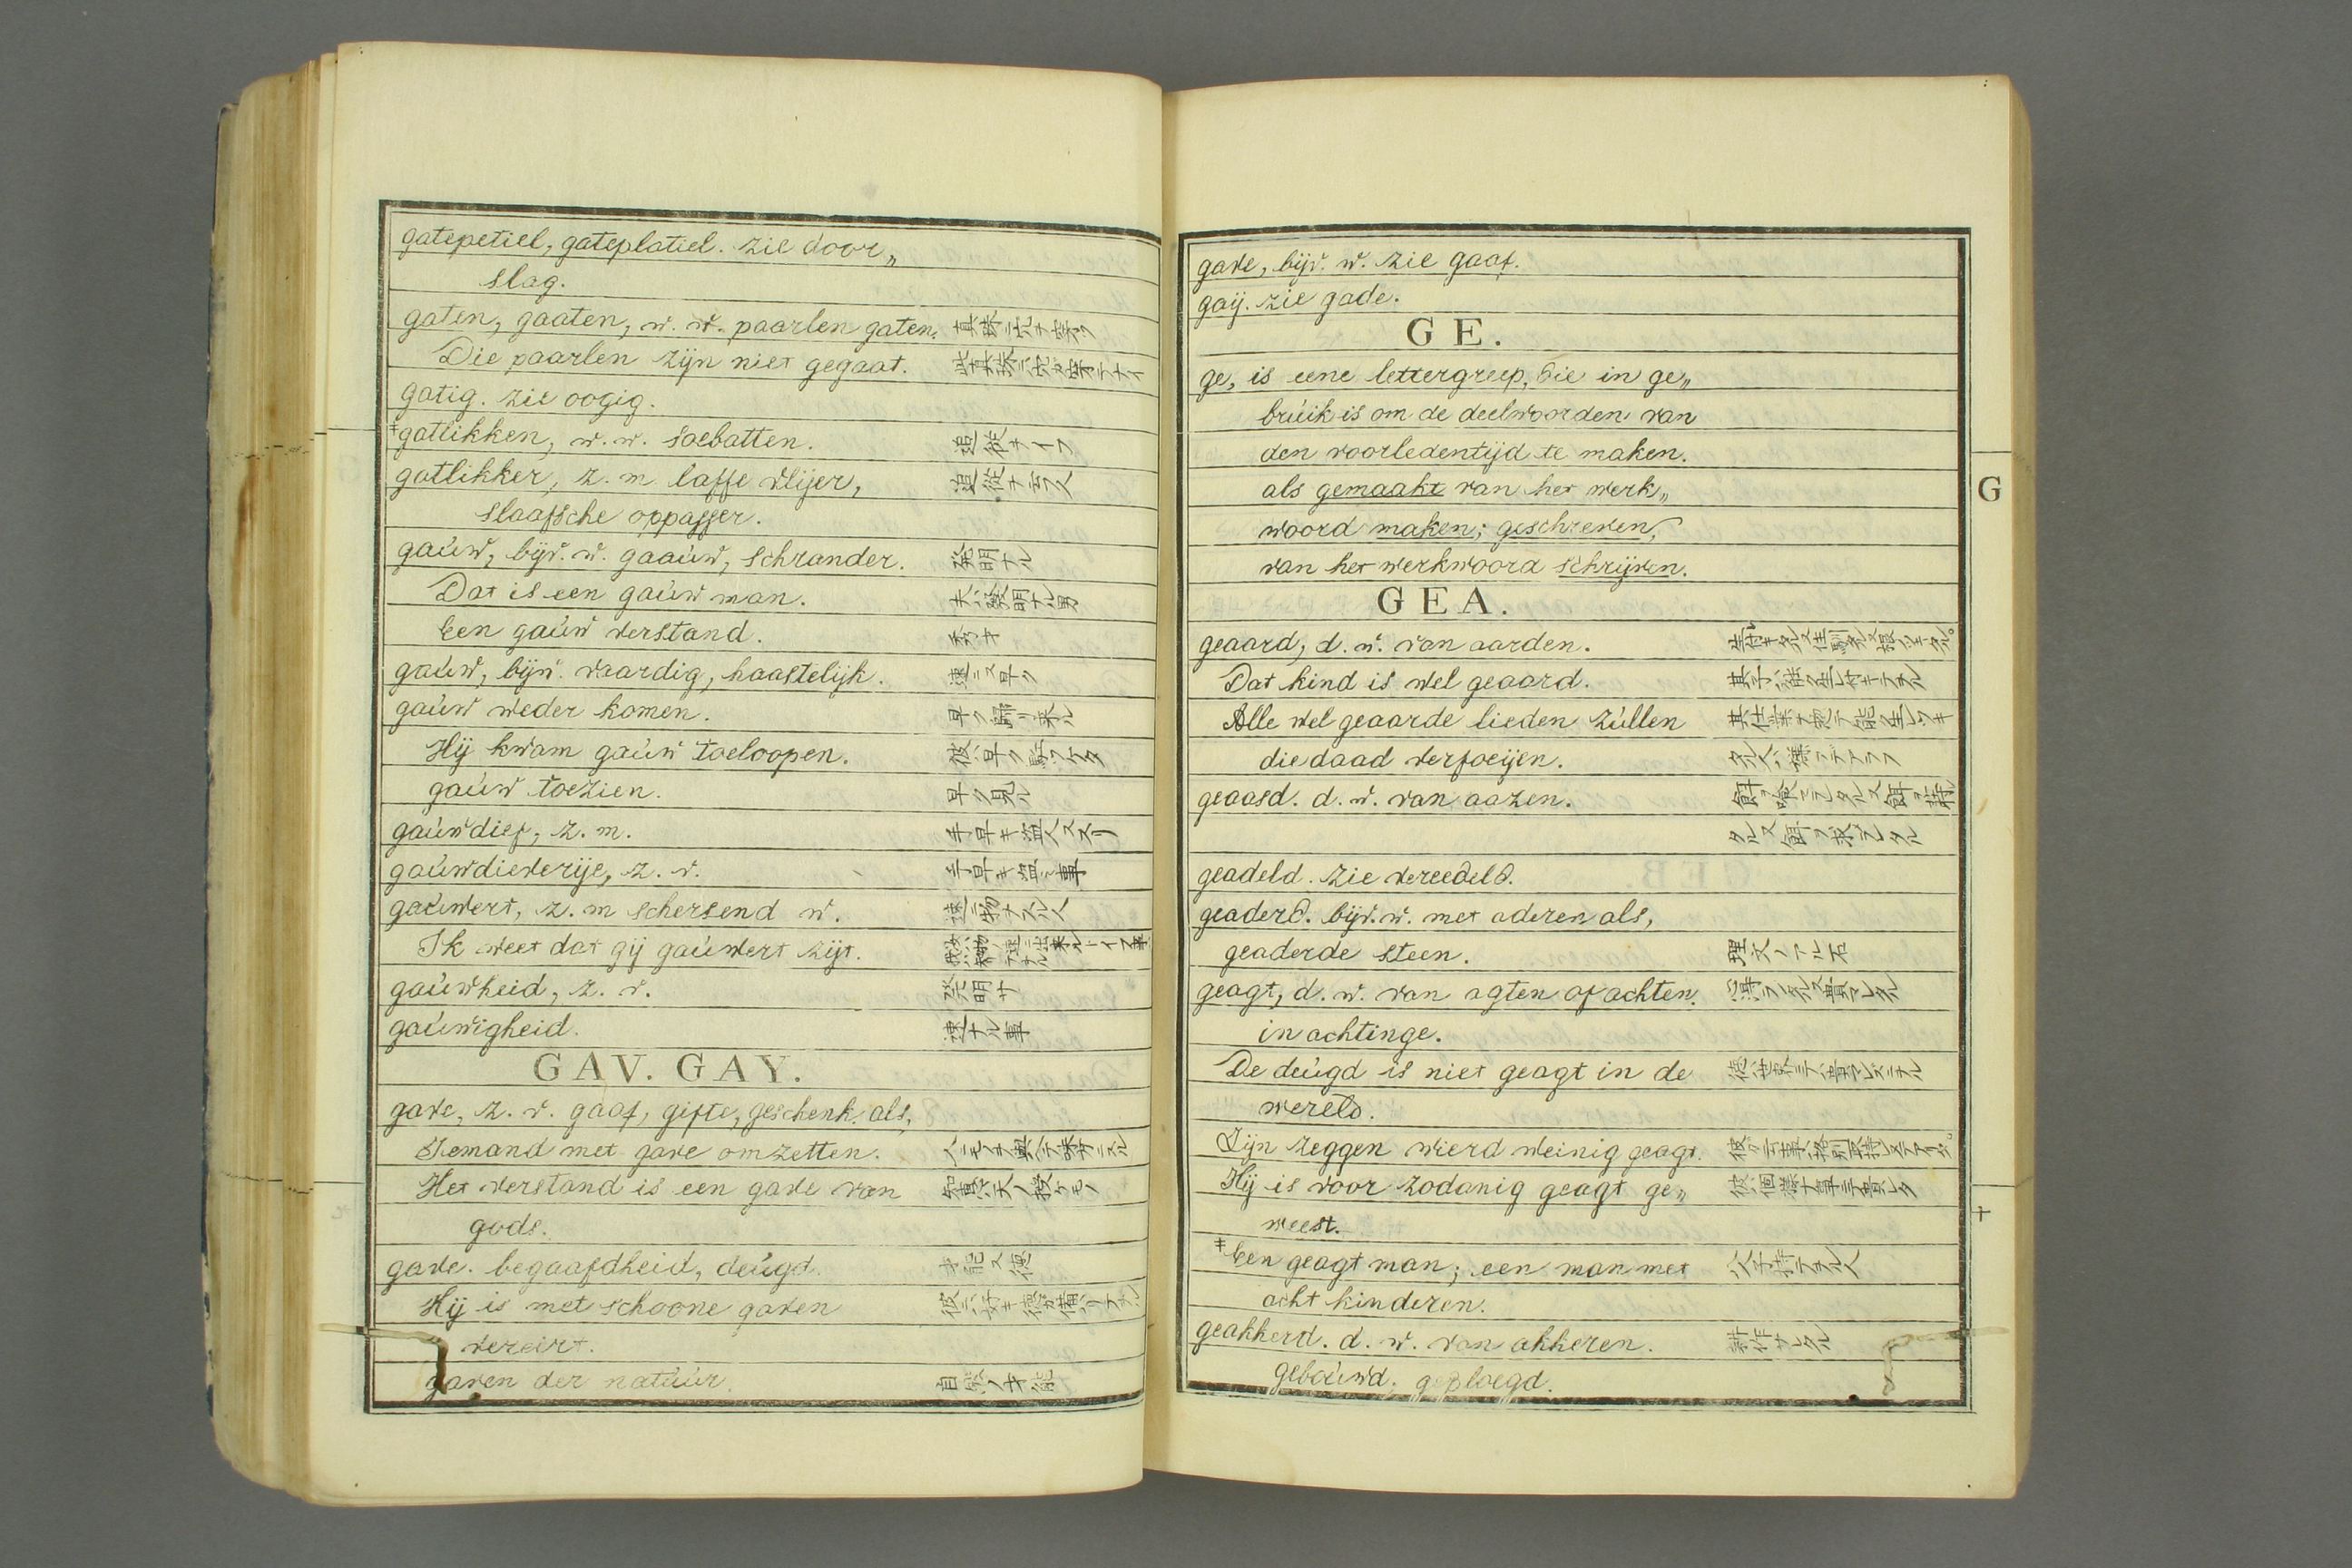 gatepetiel, gateplatiel. zie door„
slag.
gaten, gaaten, w. w. paarlen gaten. 真珠ニ孔ヲ穿ク
Die paarlen zijn niet gegaat. 此真珠ニ孔ガ穿テナイ
gatig. zie oogig.
‡gatlikken, w. w. soebatten. 追従ヲ云フ
gatlikker, z. m laffe vlijer, 追従ヲ云フ人
slaafsche oppasser.
gaúw, bijv. w. gaaúw, schrander. 発明ナル
Dat is een gaúw man. 夫ハ發明ナル男
Een gaúw verstand. 秀才
gaúw, bijw. vaardig, haastelijk. 速ニ又早ク
gaúw weder komen. 早ク歸リ来ル
Hij kwam gaúw toeloopen. 彼ハ早ク駈ケタ
gaúw toezien. 早ク見ル
gaúwdief, z. m. 手早キ盗人又スリ
gaúwdieverije, z. v. 手早キ盗ミ事
gaúwert, z. m schersend w. 速ニ物ヲスル人
Ik weet dat gij gaúwert zijt.
gaúwheid, z. v. 発明サ
gaúwigheid. 速ナル事
GAV. GAY.
gave, z. v. gaaf, gifte, geschenk. als,
Iemand met gave omzetten.
Het verstand is een gave van 知恵ハ天ノ授ケモノ
gode.
gave. begaafdheid, deúgd. 才能又徳
Hij is met schoone gaven 彼ニハ好キ徳ガ備リテアル
vereirt.
gaven der natúúr. 自然ノ才能
gave, bijv. w. zie gaaf.
gaij. zie gade.
GE.
ge, is eene lettergreep, die in ge„
brúik is om de deelwoorden van
den voorledentijd te maken.
als gemaakt van het werk„
woord maken; geschreven,
van het werkwoord schrijven.
G
GEA.
geaard, d. w. van aarden.
Dat kind is wel geaard. 其子ハ能ク生レ付テアル
Alle wel geaarde lieden zúllen
die daad verfoeijen.
geaasd. d. w. van aazen.
geadeld. zie vereedeld.
geaderd. bijv. w. met aderen als,
geaderde steen. 理文ノアル石
geagt, d. w. van agten of achten.
in achtinge.
De deúgd is niet geagt in de
wereld.
Zijn zeggen wierd weinig geagt.
Hij is voor zodanig geagt ge„
weest.
‡Een geagt man; een man met 八人子持テアル人
acht kinderen.
geakkerd. d. w. van akkeren. 耕作サレタル
geboúwd. geploegd.